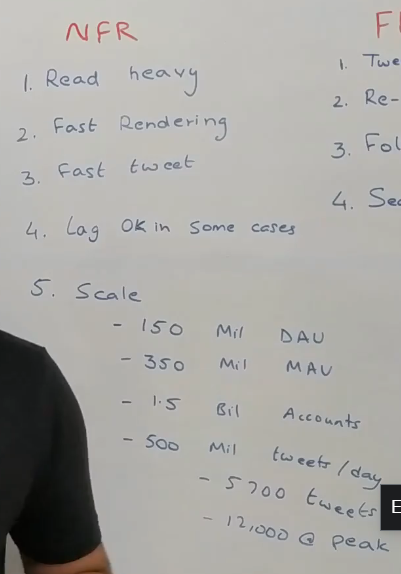 NFR
1. Read heavy
2. Fast Rendering
3. Fast tweet
4. Lag OK in some cases
5. Scale
- 150 Mil DAU
- 350 Mil MAU
- 1.5 Bil Accounts
- 500 Mil tweets/day
- 5700 tweets
- 12,000 @ peak
F
1. Twe
2. Re-
3. Fol
4. Sea
E